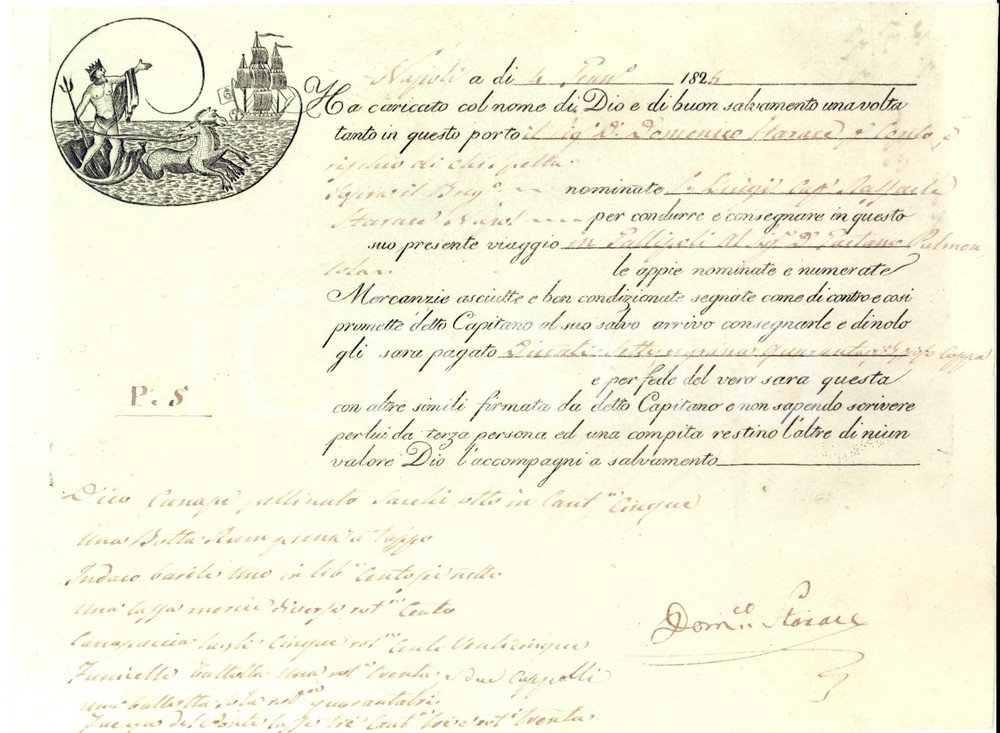 Napoli a di 4 Genn.º 1824
Ha caricato col nome di Dio e di buon salvamento una volta
tanto in questo porto il Sig.r D. Domenico Starace p Conto e
rischio di chi spetta
Sopra il Brig.º nominato S. Luigi Cap.º Raffaele
Starace Napol. per condurre e consegnare in questo
suo presente viaggio in Gallipoli Al Sig.r D. Gaetano
le appie nominate e numerate
Mercanzie asciutte e ben condizionate segnate come di contro e cosi
promette detto Capitano al suo salvo arrivo consegnarle e di nolo
gli sara pagato Ducati Sette e grana quaranta Cappa
e per fede del vero sara questa
P. S
con altre simili firmata da detto Capitano e non sapendo scrivere
per lui da terza persona ed una compita restino l'altre di niun
valore Dio l'accompagni a salvamento
Dico Canape pettinato otto in Cant. Cinque
Una Botta Rum piena a Tappo
Indaco barile Uno in lib.
Una Cassa merci diverse rot. Cento
Cinque rot. Cento Venticinque
Funicelle ballotta Una rot. trenta, e due Cappelli
una ballotta rot. quarantatre
tre Cant. tre e rot. trenta
Dom.co Starace